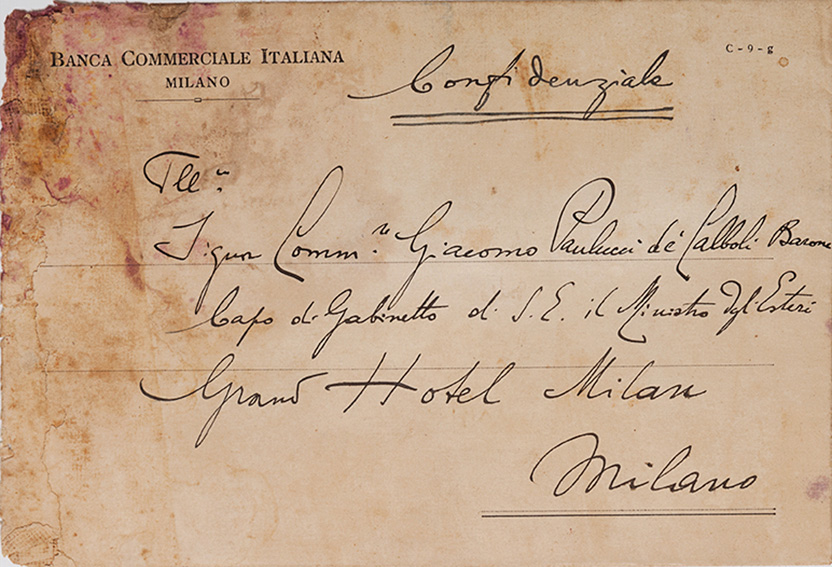 BANCA COMMERCIALE ITALIANA
MILANO
C-9-g
Confidenziale
Ill.mo
Signor Comm.re Giacomo Paulucci de' Calboli Barone
Capo di Gabinetto di S. E. il Ministro degli Esteri
Grand Hotel Milan
Milano